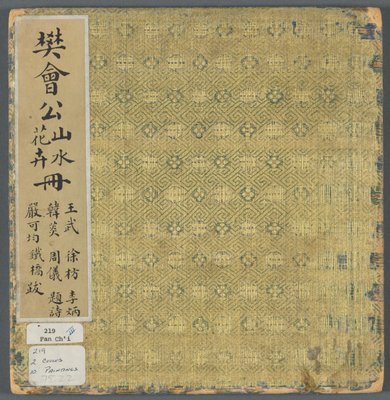 樊會公山水花卉冊
王武 徐枋 李炳
韓菼 周儀 題詩
嚴可均 鐵橋 跋
219
Pan Ch'i
219
2 Covers
10 Paintings